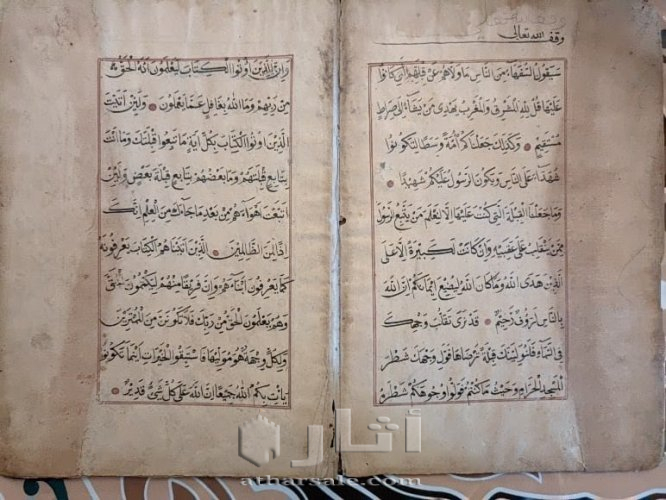 وقف لله تعالى
سَيَقُولُ السُّفَهَاءُ مِنَ النَّاسِ مَا وَلَّاهُمْ عَنْ قِبْلَتِهِمُ الَّتِي كَانُوا
عَلَيْهَا قُلْ لِلَّهِ الْمَشْرِقُ وَالْمَغْرِبُ يَهْدِي مَنْ يَشَاءُ إِلَى صِرَاطٍ
مُسْتَقِيمٍ وَكَذَلِكَ جَعَلْنَاكُمْ أُمَّةً وَسَطًا لِتَكُونُوا
شُهَدَاءَ عَلَى النَّاسِ وَيَكُونَ الرَّسُولُ عَلَيْكُمْ شَهِيدًا
وَمَا جَعَلْنَا الْقِبْلَةَ الَّتِي كُنْتَ عَلَيْهَا إِلَّا لِنَعْلَمَ مَنْ يَتَّبِعُ الرَّسُولَ
مِمَّنْ يَنْقَلِبُ عَلَى عَقِبَيْهِ وَإِنْ كَانَتْ لَكَبِيرَةً إِلَّا عَلَى
الَّذِينَ هَدَى اللَّهُ وَمَا كَانَ اللَّهُ لِيُضِيعَ إِيمَانَكُمْ إِنَّ اللَّهَ
بِالنَّاسِ لَرَؤُفٌ رَحِيمٌ قَدْ نَرَى تَقَلُّبَ وَجْهِكَ
فِي السَّمَاءِ فَلَنُوَلِّيَنَّكَ قِبْلَةً تَرْضَاهَا فَوَلِّ وَجْهَكَ شَطْرَ
الْمَسْجِدِ الْحَرَامِ وَحَيْثُ مَا كُنْتُمْ فَوَلُّوا وُجُوهَكُمْ شَطْرَهُ
وَإِنَّ الَّذِينَ أُوتُوا الْكِتَابَ لَيَعْلَمُونَ أَنَّهُ الْحَقُّ
مِنْ رَبِّهِمْ وَمَا اللَّهُ بِغَافِلٍ عَمَّا يَعْمَلُونَ وَلَئِنْ أَتَيْتَ
الَّذِينَ أُوتُوا الْكِتَابَ بِكُلِّ آيَةٍ مَا تَبِعُوا قِبْلَتَكَ وَمَا أَنْتَ
بِتَابِعٍ قِبْلَتَهُمْ وَمَا بَعْضُهُمْ بِتَابِعٍ قِبْلَةَ بَعْضٍ وَلَئِنِ
اتَّبَعْتَ أَهْوَاءَهُمْ مِنْ بَعْدِ مَا جَاءَكَ مِنَ الْعِلْمِ إِنَّكَ
إِذًا لَمِنَ الظَّالِمِينَ الَّذِينَ آتَيْنَاهُمُ الْكِتَابَ يَعْرِفُونَهُ
كَمَا يَعْرِفُونَ أَبْنَاءَهُمْ وَإِنَّ فَرِيقًا مِنْهُمْ لَيَكْتُمُونَ الْحَقَّ
وَهُمْ يَعْلَمُونَ الْحَقُّ مِنْ رَبِّكَ فَلَا تَكُونَنَّ مِنَ الْمُمْتَرِينَ
وَلِكُلٍّ وِجْهَةٌ هُوَ مُوَلِّيهَا فَاسْتَبِقُوا الْخَيْرَاتِ أَيْنَمَا تَكُونُوا
يَأْتِ بِكُمُ اللَّهُ جَمِيعًا إِنَّ اللَّهَ عَلَى كُلِّ شَيْءٍ قَدِيرٌ
أثار
atharsale.com